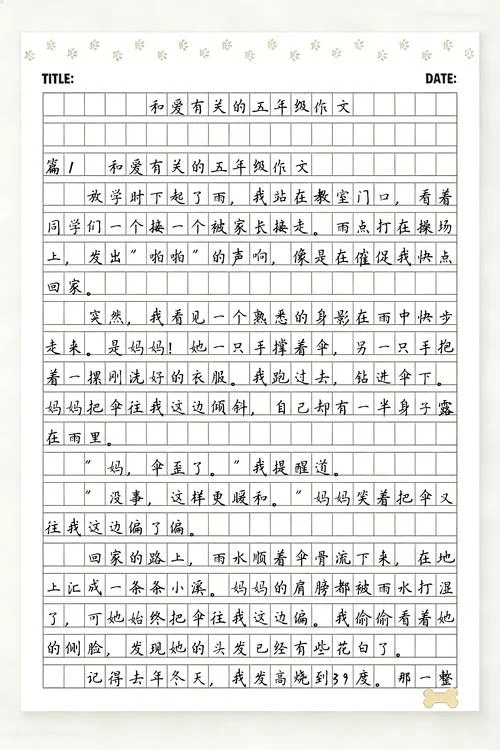 TITLE:
DATE:
和爱有关的五年级作文
篇1 和爱有关的五年级作文
放学时下起了雨，我站在教室门口，看着
同学们一个接一个被家长接走。雨点打在操场
上，发出"啪啪"的声响，像是在催促我快点
回家。
突然，我看见一个熟悉的身影在雨中快步
走来。是妈妈！她一只手撑着伞，另一只手抱
着一摞刚洗好的衣服。我跑过去，钻进伞下。
妈妈把伞往我这边倾斜，自己却有一半身子露
在雨里。
"妈，伞歪了。"我提醒道。
"没事，这样更暖和。"妈妈笑着把伞又
往我这边偏了偏。
回家的路上，雨水顺着伞骨流下来，在地
上汇成一条条小溪。妈妈的肩膀都被雨水打湿
了，可她始终把伞往我这边偏。我偷偷看着她
的侧脸，发现她的头发已经有些花白了。
记得去年冬天，我发高烧到39度。那一整